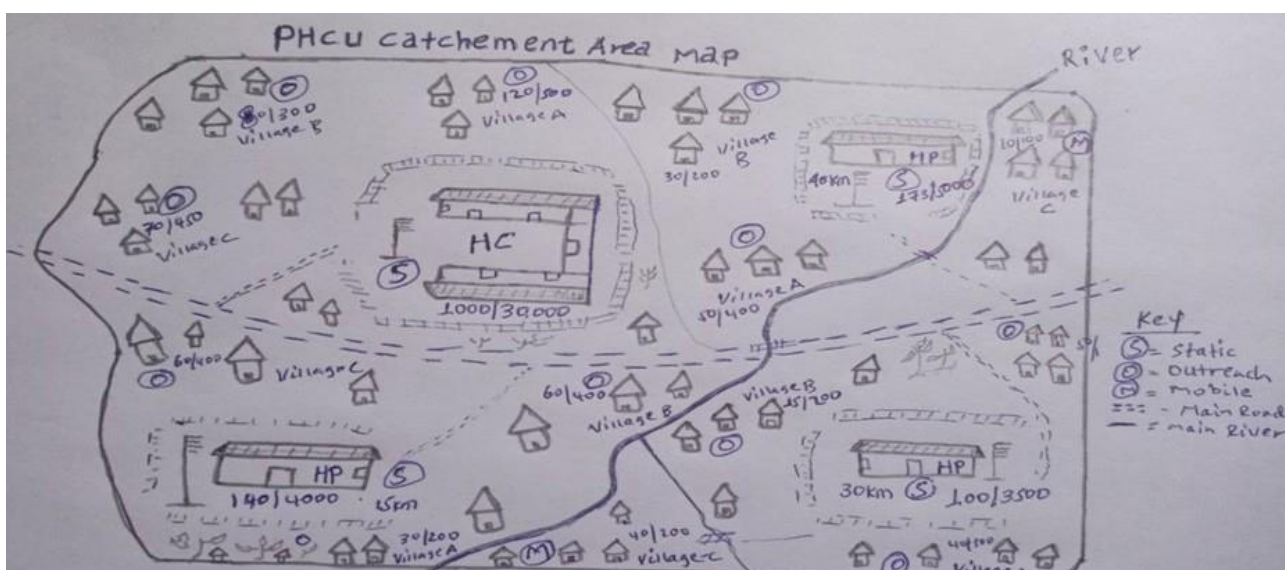 PHCU Catchement Area Map
River
O
80/300
Village B
O
120/500
Village A
O
Village
B
30/200
HP
40km
S
175/5000
10/100
M
Village
C
O
70/450
Village C
HC
S
1000/30,000
O
Village A
50/400
60/400
O
Village C
60/400
O
Village B
Village B
15/200
O
O
HP
140/4000
S
15km
HP
30km
S
100/3500
O
30/200
Village A
M
40/200
Village-C
O
40/500
Key
S = Static
O = Outreach
M = Mobile
=== - Main Road
— = main River